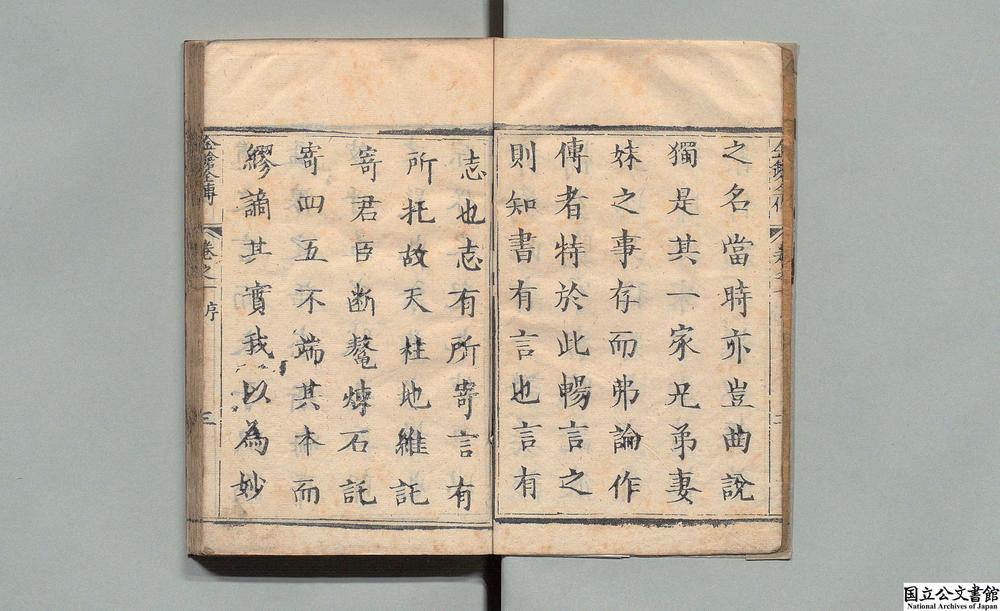 之名當時亦豈曲說
獨是其一家兄弟妻
妹之事存而弗論作
傳者特於此暢言之
則知書有言也言有
志也志有所寄言有
所托故天柱地維託
寄君臣断鰲煉石託
寄四五不端其本而
繆謫其實我以為妙
卷之一 序
三
国立公文書館
National Archives of Japan